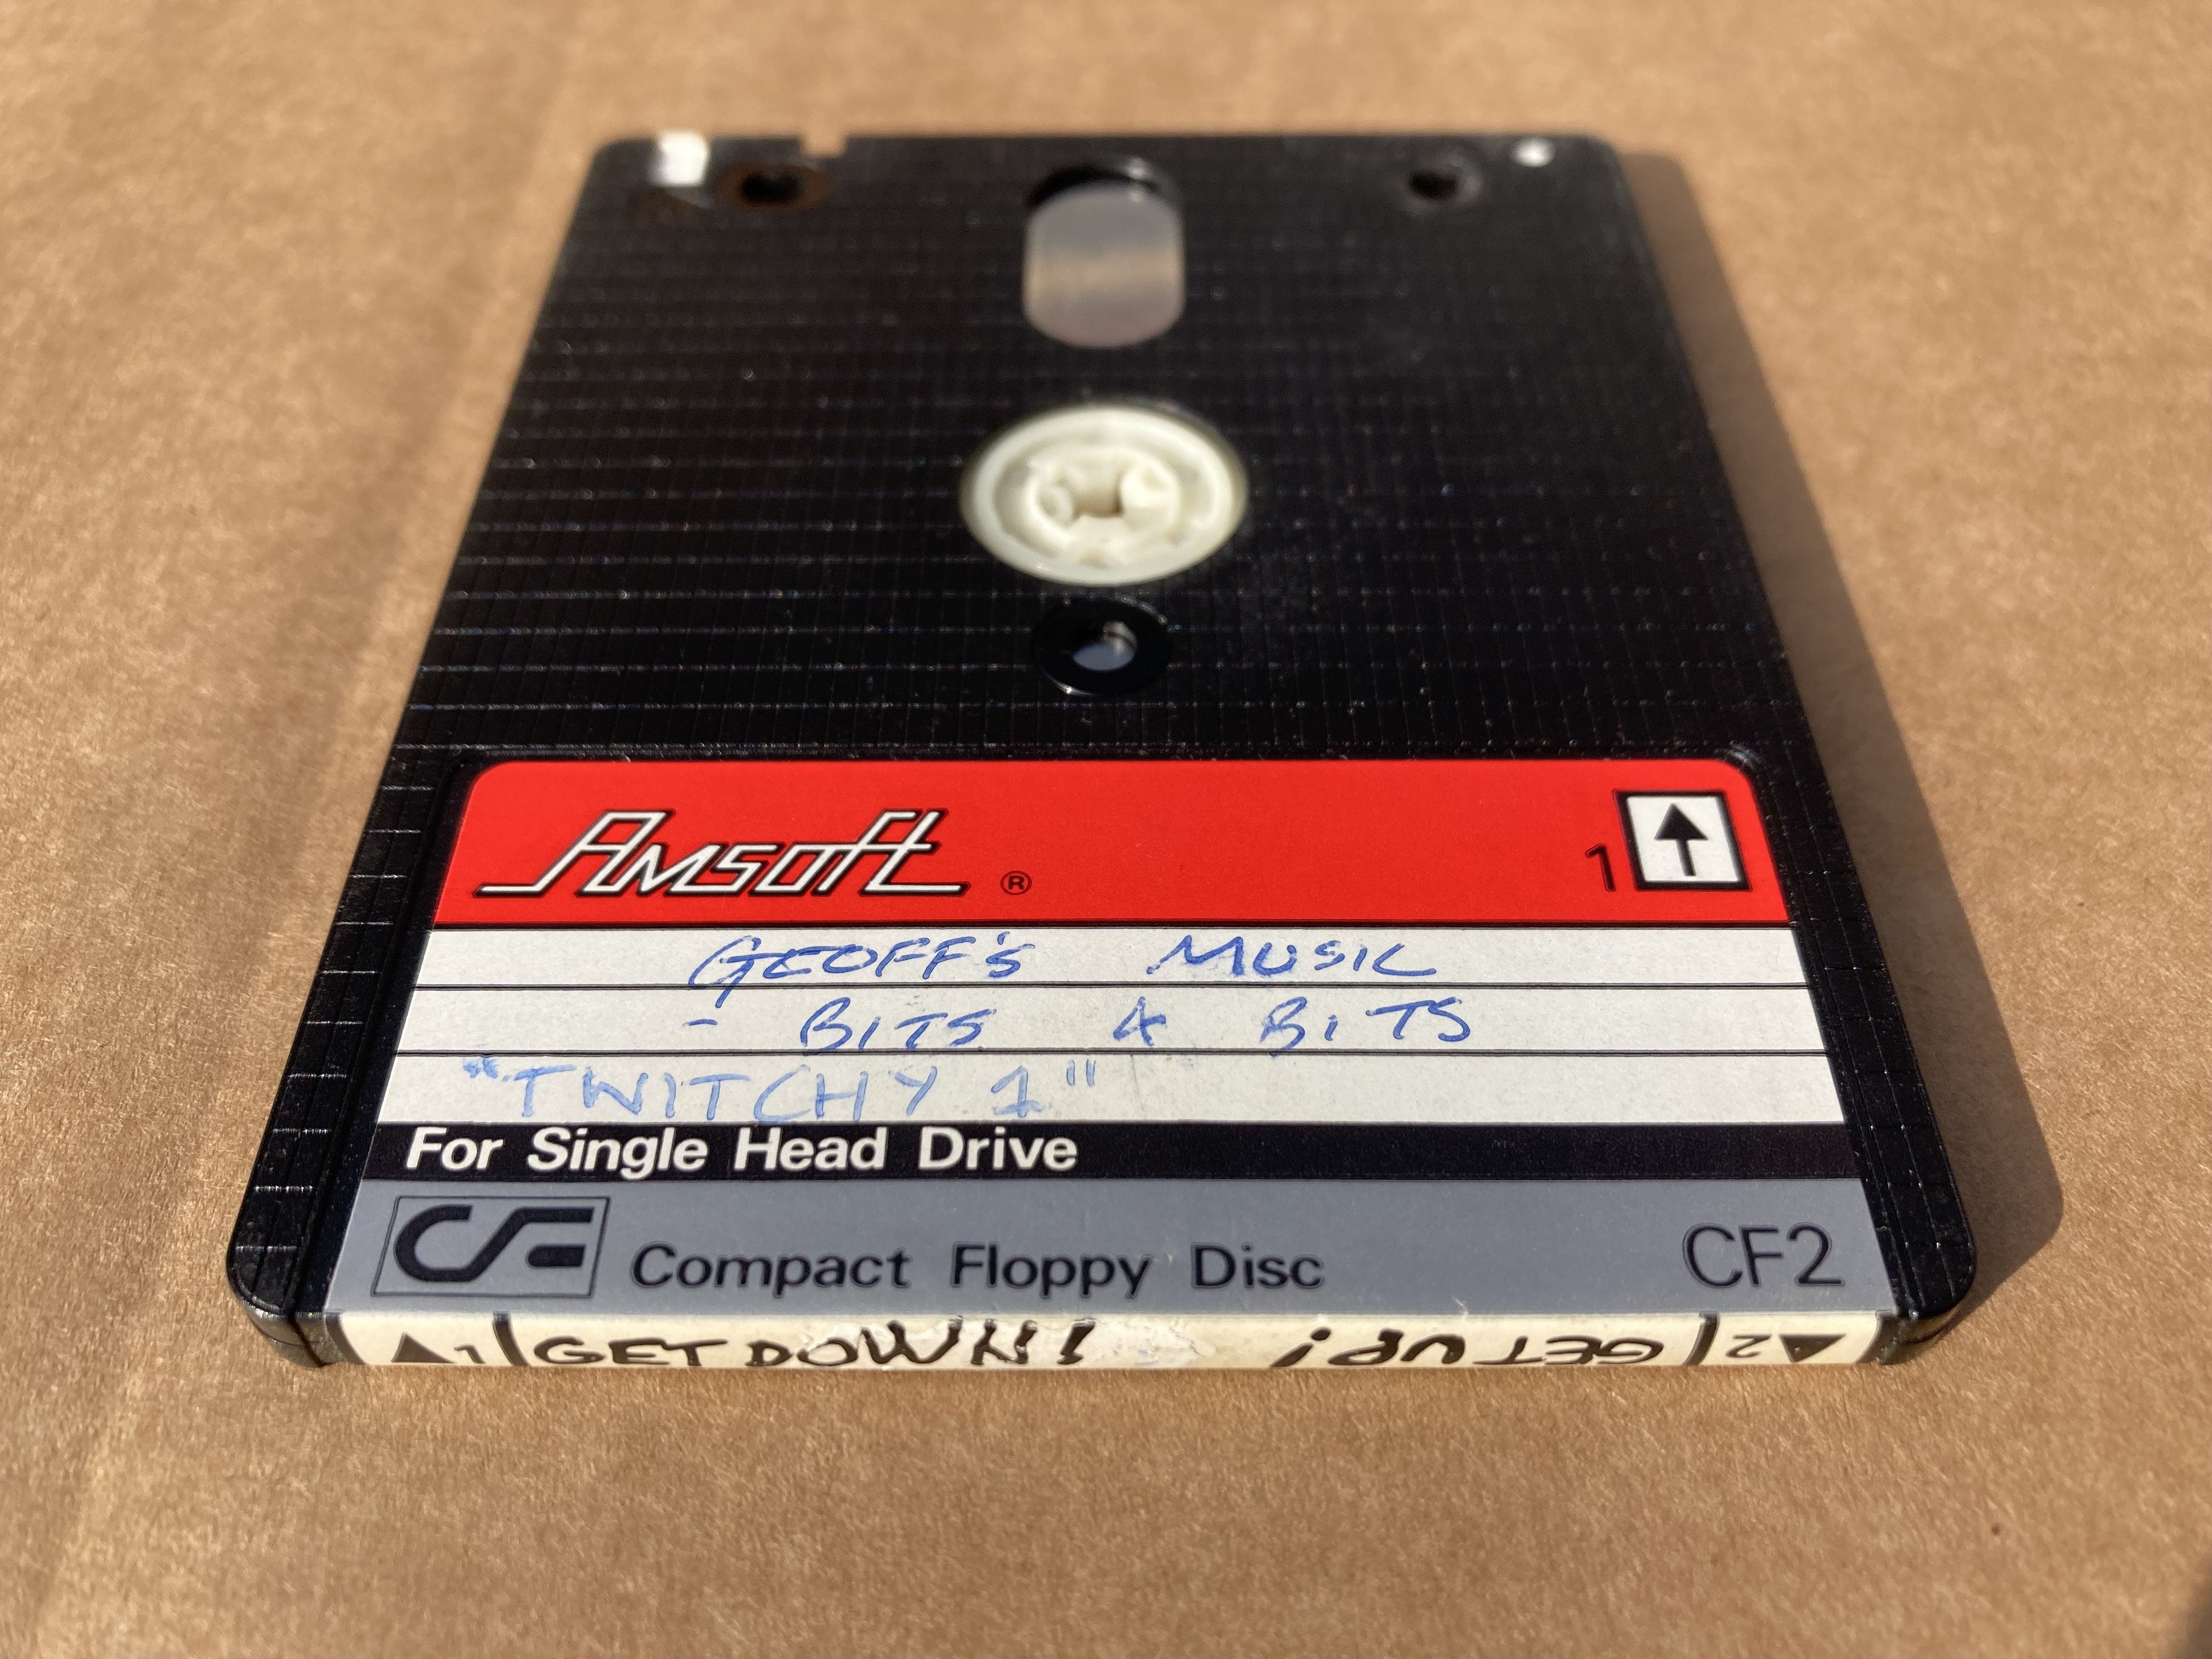 Amsoft ®
1
GEOFF'S MUSIC
- BITS & BITS
"TWITCHY 1"
For Single Head Drive
CF Compact Floppy Disc CF2
1 GET DOWN!
2 GET UP!